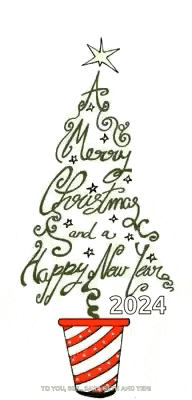 A
Merry
Christmas
and a
Happy New Year
2024